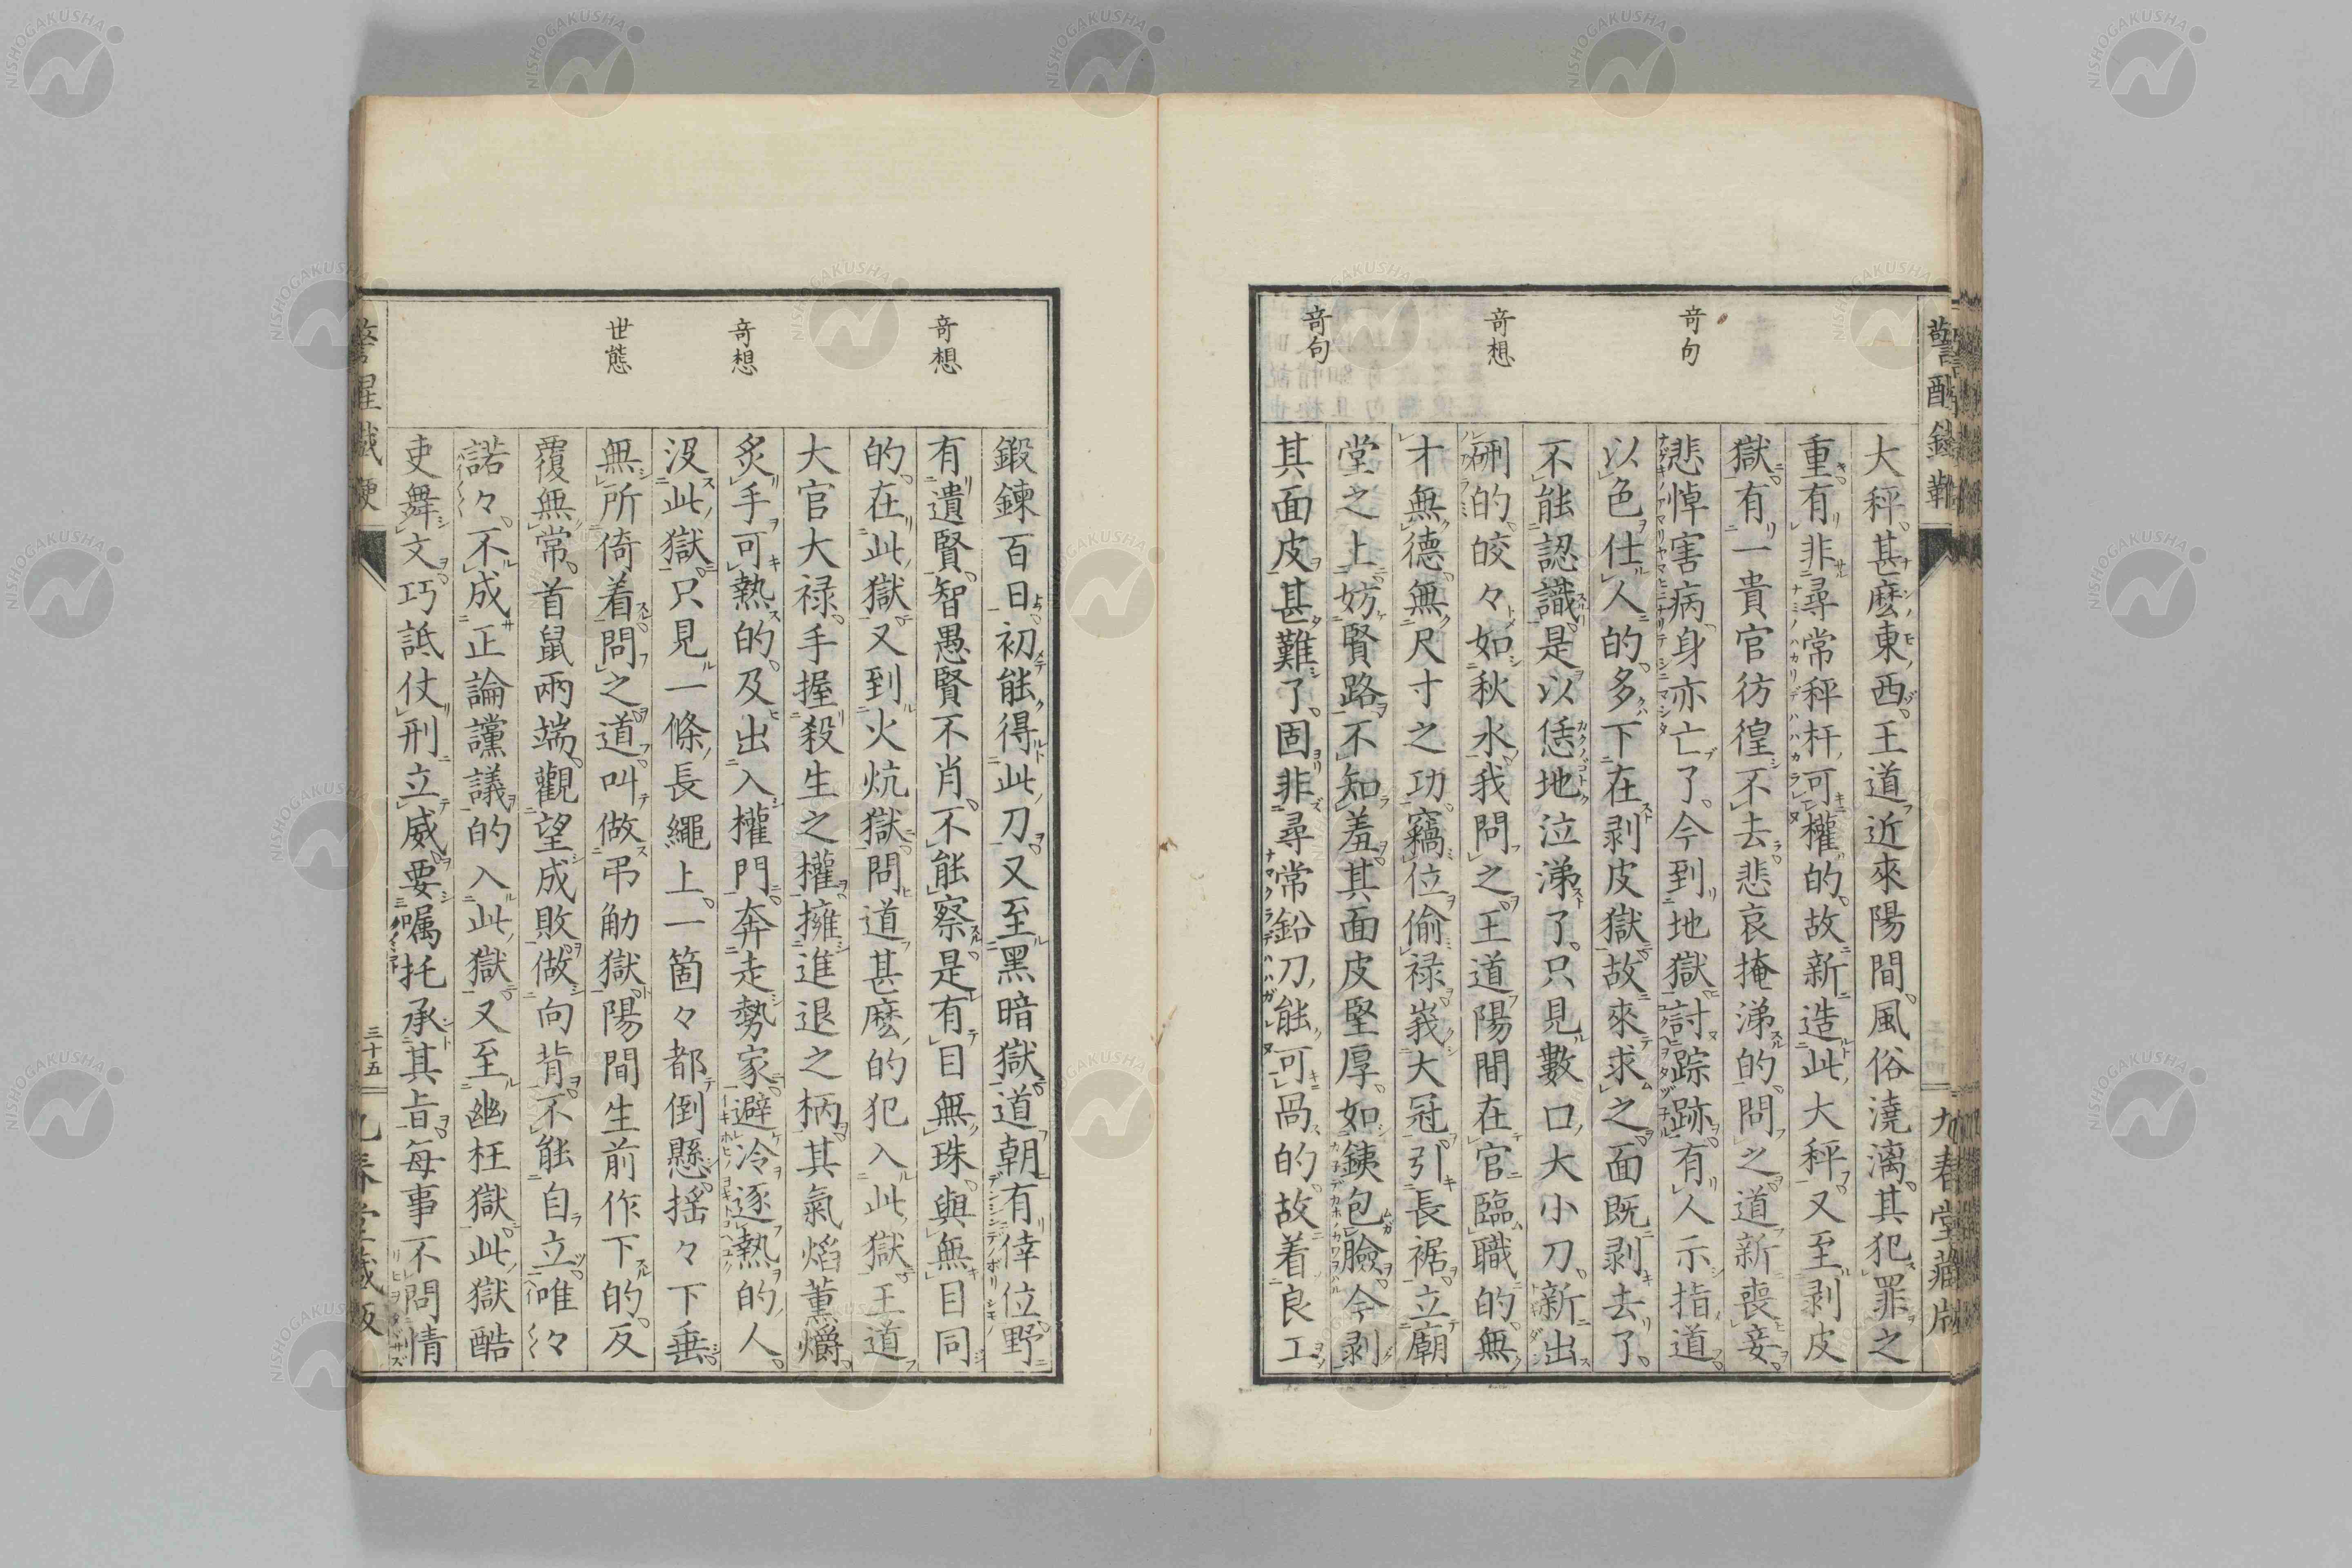 奇句
奇想
奇句
大秤。甚麽東西。王道近來陽間。風俗澆漓。其犯罪之
重有非尋常秤杆可權的。故新造此大秤。又至剥皮
獄。有一貴官彷徨不去。悲哀掩涕的。問之。道新喪妾。
悲悼害病。身亦亡了。今到地獄。討踪跡。有人示指道。
以色仕人的。多下在剥皮獄。故來求之。面既剥去了。
不能認識。是以恁地泣涕了。只見數口大小刀。新出
硎的。皎々如秋水。我問之。王道陽間在官臨職的。無
才無德。無尺寸之功。竊位偷禄。峩大冠。引長裾。立廟
堂之上。妨賢路。不知羞。其面皮堅厚。如銕包臉。今剥
其面皮。甚難了。固非尋常鉛刀能可咼的。故着良工
奇想
奇想
世態
鍛鍊百日。初能得此刀。又至黑暗獄。道朝有倖位。野
有遺賢。智愚賢不肖。不能察是。有目無珠。與無目同
的。在此獄。又到火炕獄。問道甚麽的犯入此獄。王道
大官大禄。手握殺生之權。擁進退之柄。其氣焰薰爝。
炙手可熱的。及出入權門。奔走勢家。避冷逐熱的人。
没此獄。只見一條長繩上。一箇々都倒懸。揺々下垂。
無所倚着。問之。道。叫做弔觔獄。陽間生前作下的。反
覆無常。首鼠兩端。觀望成敗。做向背。不能自立。唯々
諾々。不成正論讜議的。入此獄。又至幽枉獄。此獄酷
吏舞文巧詆。仗刑立威。要囑托承其旨。每事不問情
三十五